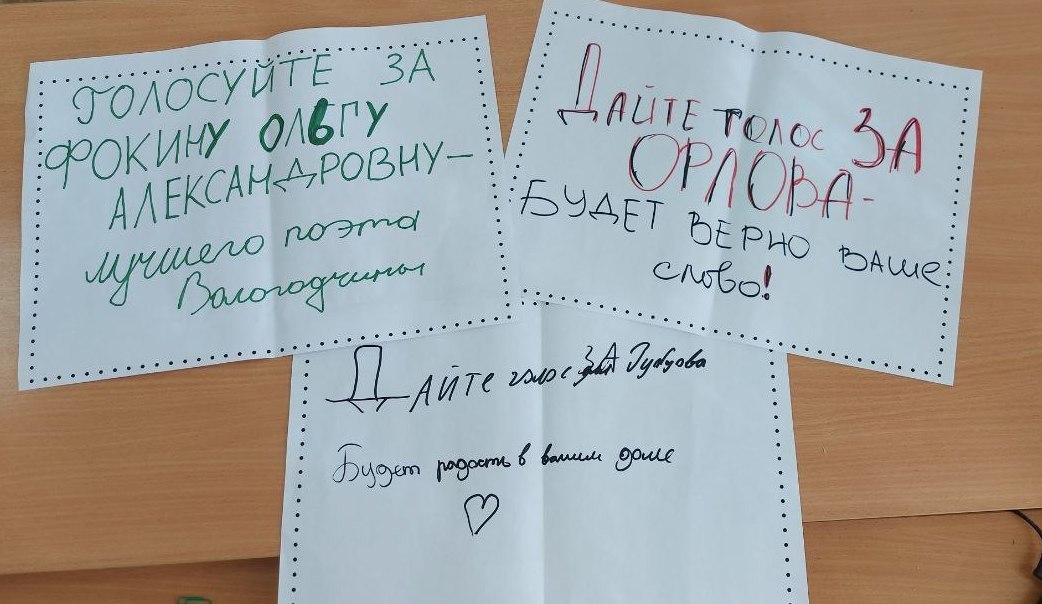 ГОЛОСУЙТЕ ЗА
ФОКИНУ ОЛЬГУ
АЛЕКСАНДРОВНУ—
лучшего поэта
Вологодчины
ДАЙТЕ ГОЛОС ЗА
ОРЛОВА-
БУДЕТ ВЕРНО ВАШЕ
слово!
ДАЙТЕ голос ЗА
Будет радость в вашем доме